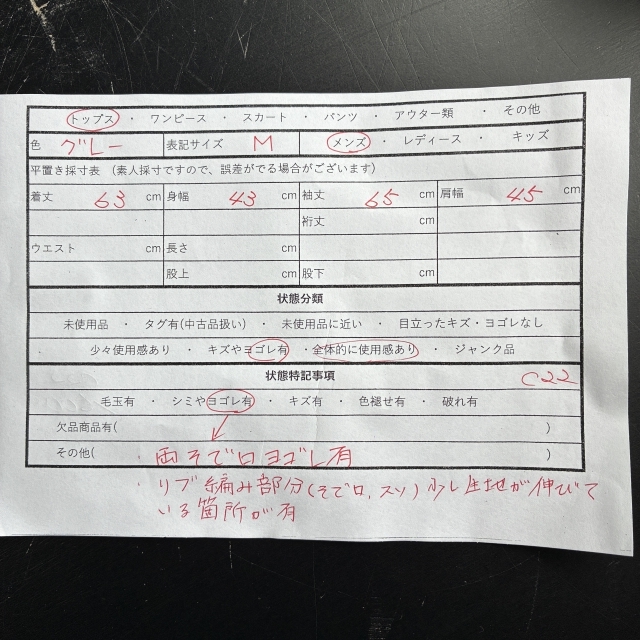 トップス ・ ワンピース ・ スカート ・ パンツ ・ アウター類 ・ その他
色 グレー 表記サイズ M メンズ ・ レディース ・ キッズ
平置き採寸表 (素人採寸ですので、誤差がでる場合がございます)
着丈 63 cm 身幅 43 cm 袖丈 65 cm 肩幅 45 cm
裄丈 cm
ウエスト cm 長さ cm
股上 cm 股下 cm
状態分類
未使用品 ・ タグ有(中古品扱い) ・ 未使用品に近い ・ 目立ったキズ・ヨゴレなし
少々使用感あり ・ キズやヨゴレ有 ・ 全体的に使用感あり ・ ジャンク品
状態特記事項 C22
毛玉有 ・ シミやヨゴレ有 ・ キズ有 ・ 色褪せ有 ・ 破れ有
欠品商品有( )
その他( 両そで口ヨゴレ有 )
リブ編み部分(そで口、スソ)少し生地が伸びて
いる箇所が有